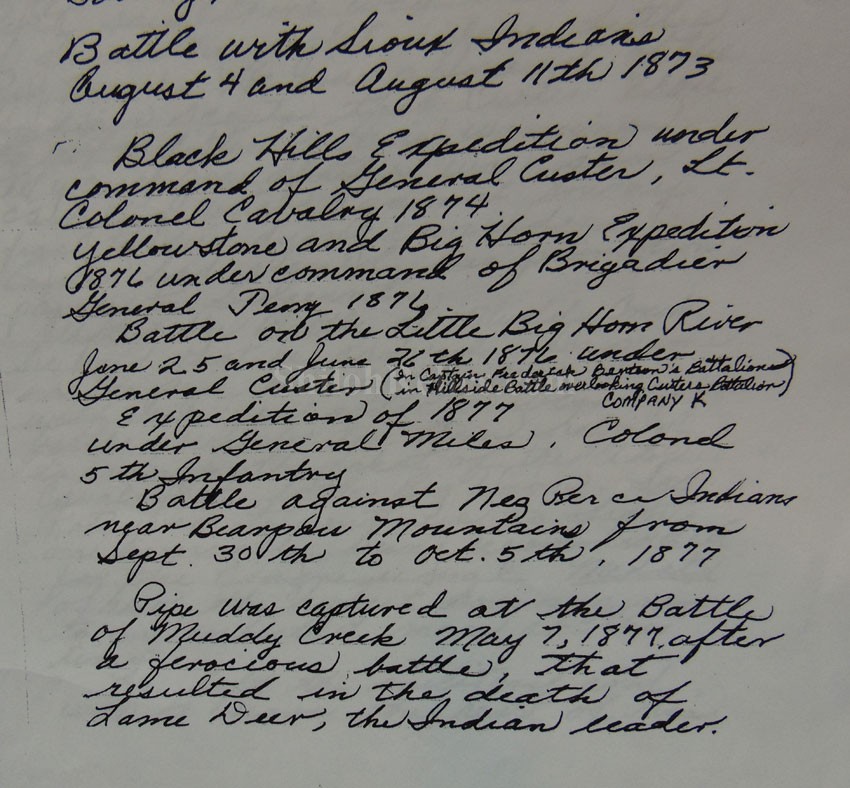 Battle with Sioux Indians
August 4 and August 11th 1873
Black Hills Expedition under
command of General Custer, Lt.
Colonel Cavalry 1874
Yellowstone and Big Horn Expedition
1876 under command of Brigadier
General Terry 1876.
Battle on the Little Big Horn River
June 25 and June 26th 1876 under
General Custer (In Captain Frederick Benteen's Battalion
(in Hillside Battle overlooking Custers Battalion)
COMPANY K
Expedition of 1877
under General Miles, Colonel
5th Infantry
Battle against Nez Perce Indians
near Bearpaw Mountains from
Sept. 30th to Oct. 5th, 1877
Pipe was captured at the Battle
of Muddy Creek May 7, 1877, after
a ferocious battle, that
resulted in the death of
Lame Deer, the Indian leader.